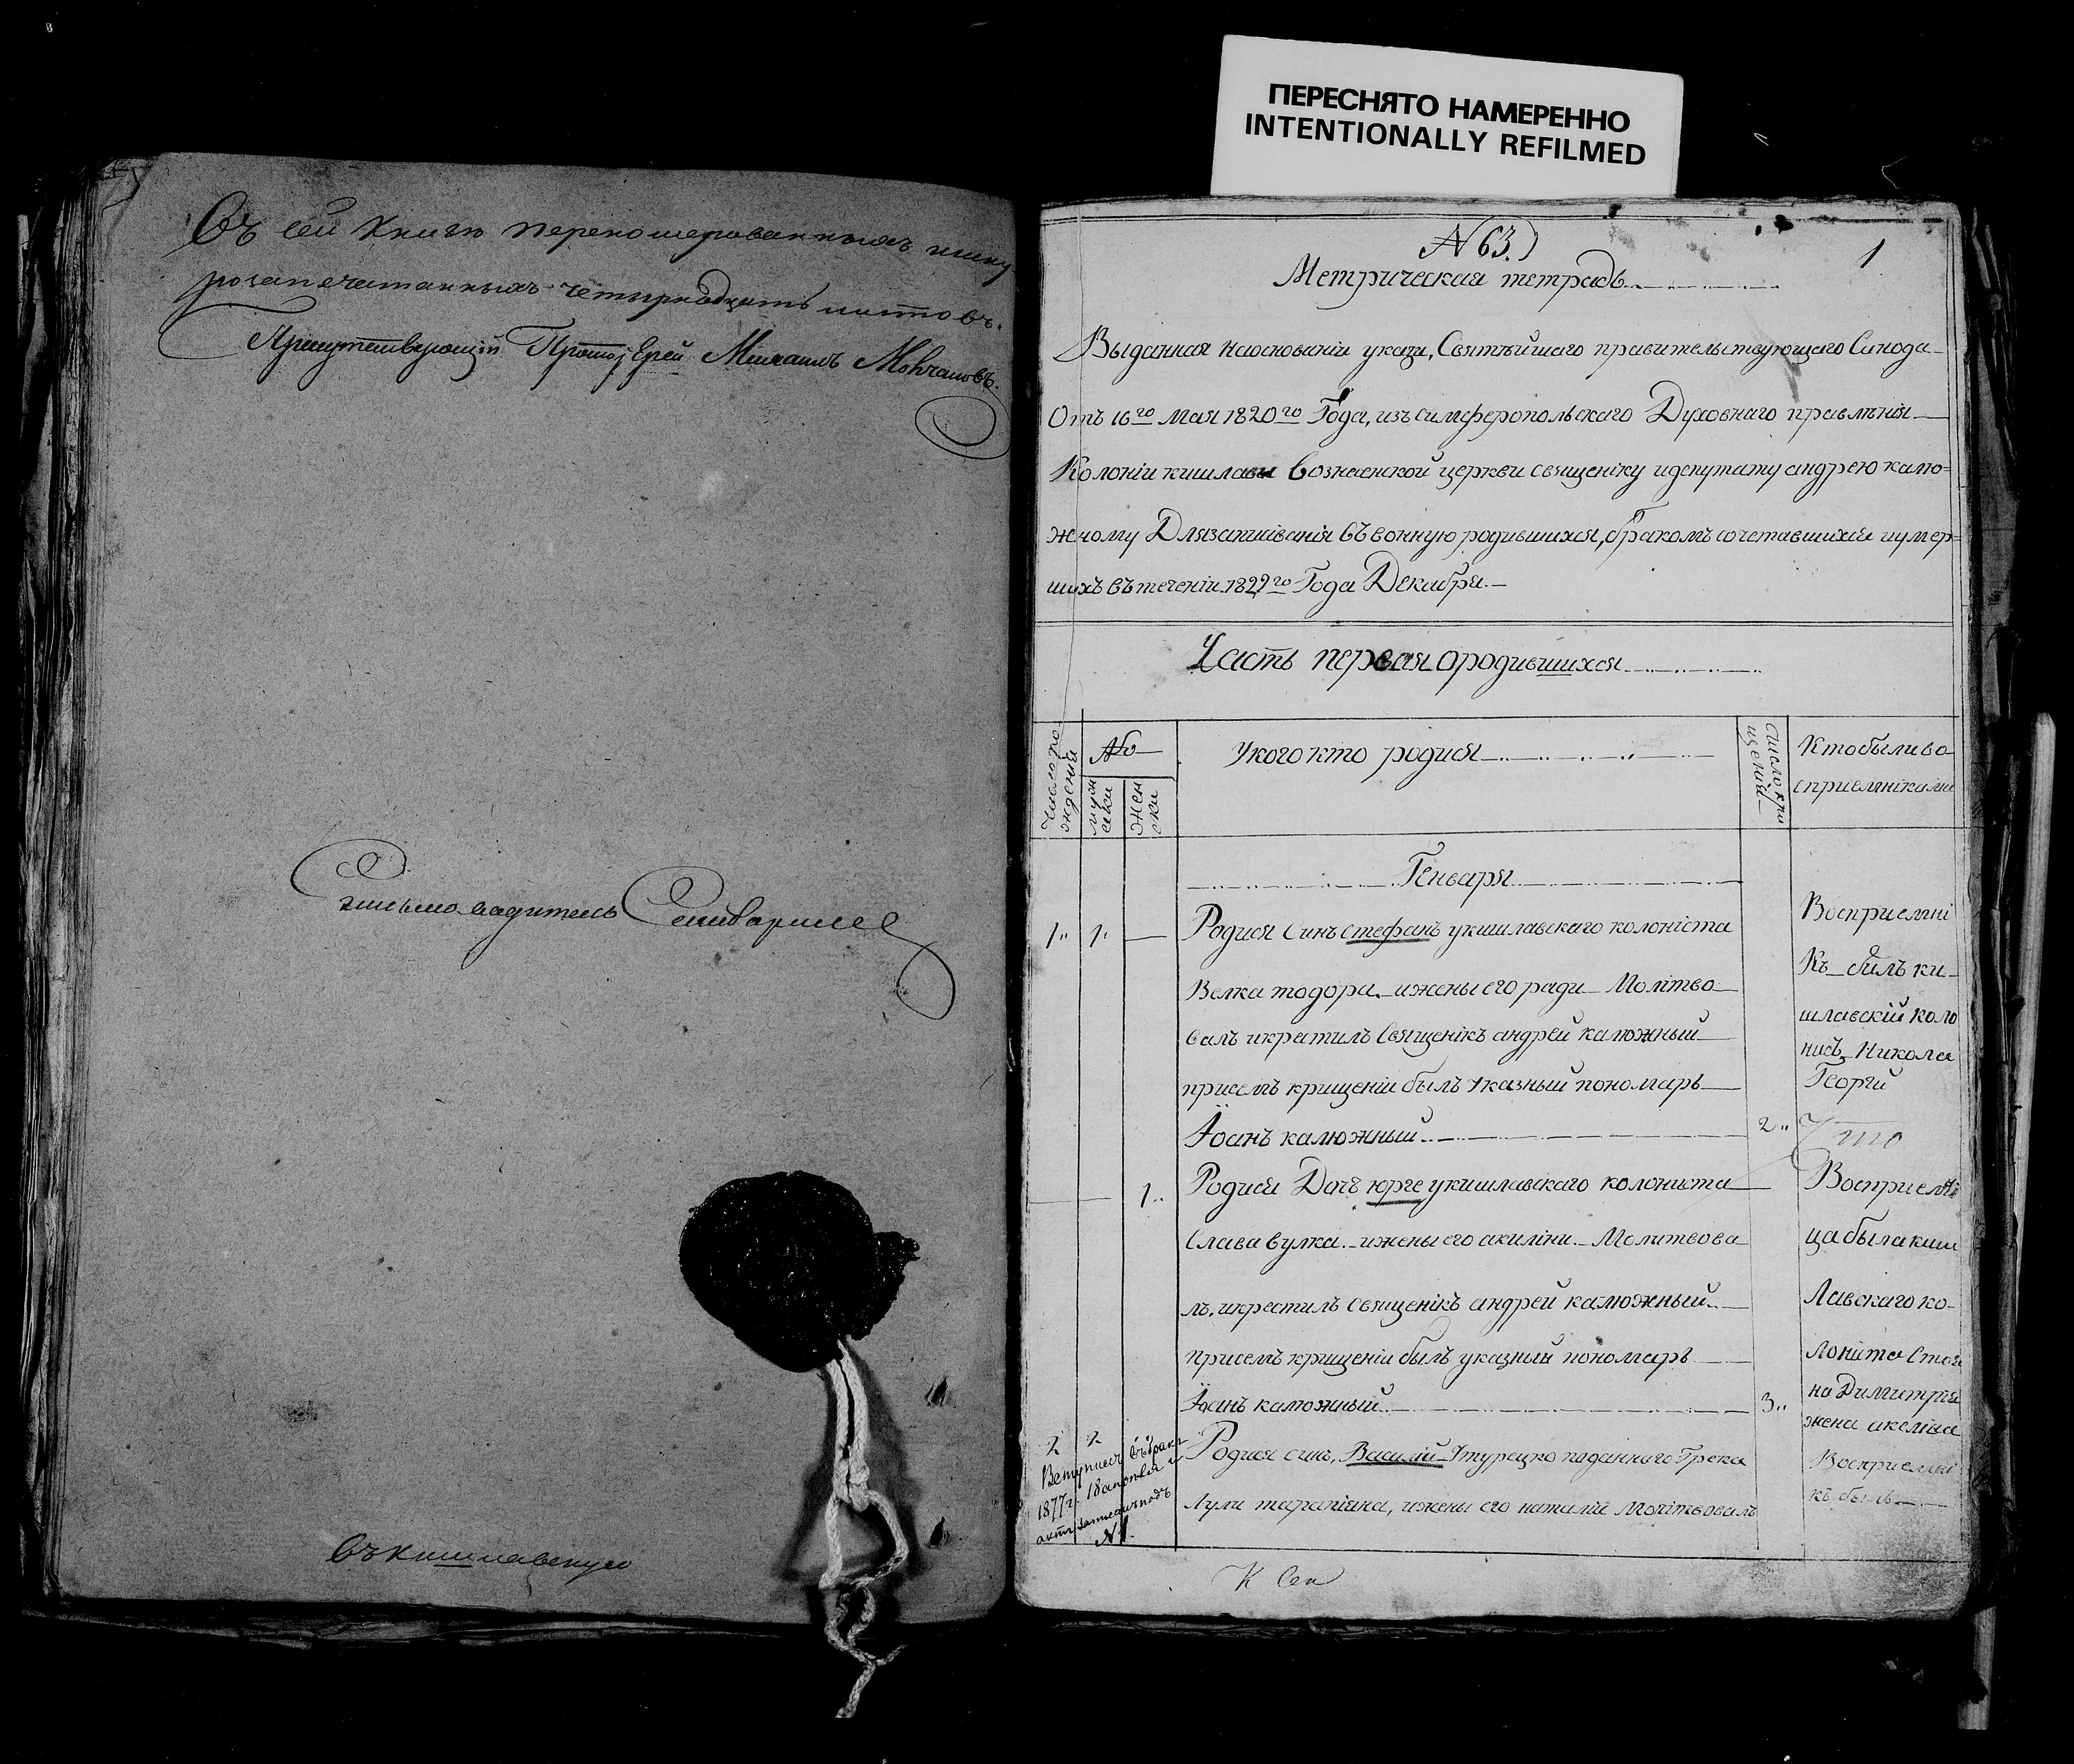 ПЕРЕСНЯТО НАМЕРЕННО
INTENTIONALLY REFILMED
Въ сей книгѣ переномерованныхъ ишну
розапечатанныхъ четырнадцать листовъ.
Присутствующій Протоіерей Михаилъ
Письмоводитель
въ кишлавскую
N 63.)
1
Метрическая тетрадь
Выданная наоснованіи указа, Святѣйшаго правительствующаго Синода
Отъ 16го Мая 1820го Года, изъ симферопольскаго Духовнаго правлѣнія
Колоніи кишлавы Вознесенской церкви священіку идепутату андрею калю=
жному Длязаписіванія въ вонную родившихся, бракомъ сочетавшихся иумер=
шихъ въ теченіи 1822го Года Декабря.
Часть первая ородившихся
Число ро
жденія
№
муж
ски
жен
ски
Укого кто родися
число кре
щеній
Кто были во
сприемніками
Генваря
1 1 Родися Синъ стефанъ укишлавскаго колоніста
Велка тодора. ижены его ради Молітво
валъ икратилъ Священікъ андрей калюжный
присемъ крищеніи былъ указный пономарь
Іоанъ калюжный 2
Восприемні
къ былъ ки
шлавскій коло
нисъ Никола
Георгій
1 Родися Дочь юрге укишлавскаго колониста
Слава вулка. ижены его акиліни. Молитвова
лъ. икрестилъ священікъ андрей калюжный
присемъ крищеніи былъ указный пономарь
Іоанъ калюжный 3
Восприемні
ца была киш
лавскаго ко
лониста Стоя
на Димитрія
жена акелина
2 2 Родися синъ, Василій Утурецко поданнаго Грека
ижены его наталіи молітвовалъ
Восприемні
къ былъ
Вступилъ въ бракъ
1877г. 18
актъ записанъ подъ
№ 1.